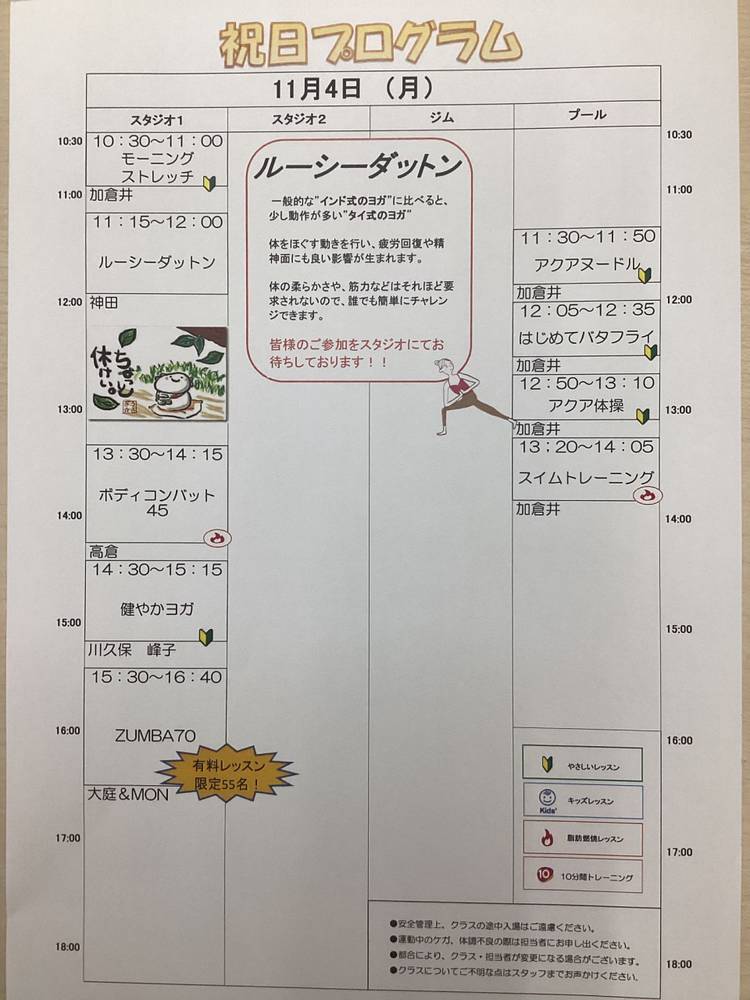 祝日プログラム
11月4日 （月）
スタジオ1 スタジオ2 ジム プール
10:30
11:00
12:00
13:00
14:00
15:00
16:00
17:00
18:00
10：30～11：00
モーニング
ストレッチ
加倉井
11：15～12：00
ルーシーダットン
神田
ちょっと
休けい。
13：30～14：15
ボディコンバット
45
高倉
14：30～15：15
健やかヨガ
川久保 峰子
15：30～16：40
ZUMBA70
有料レッスン
限定55名！
大庭＆MON
ルーシーダットン
一般的な"インド式のヨガ"に比べると、
少し動作が多い"タイ式のヨガ"
体をほぐす動きを行い、疲労回復や精
神面にも良い影響が生まれます。
体の柔らかさや、筋力などはそれほど要
求されないので、誰でも簡単にチャレン
ジできます。
皆様のご参加をスタジオにてお
待ちしております！！
11：30～11：50
アクアヌードル
加倉井
12：05～12：35
はじめてバタフライ
加倉井
12：50～13：10
アクア体操
加倉井
13：20～14：05
スイムトレーニング
加倉井
10:30
11:00
12:00
13:00
14:00
15:00
16:00
17:00
18:00
やさしいレッスン
Kids' キッズレッスン
脂肪燃焼レッスン
10 10分間トレーニング
●安全管理上、クラスの途中入場はご遠慮ください。
●運動中のケガ、体調不良の際は担当者にお申し出ください。
●都合により、クラス・担当者が変更になる場合がございます。
●クラスについてご不明な点はスタッフまでお声かけください。